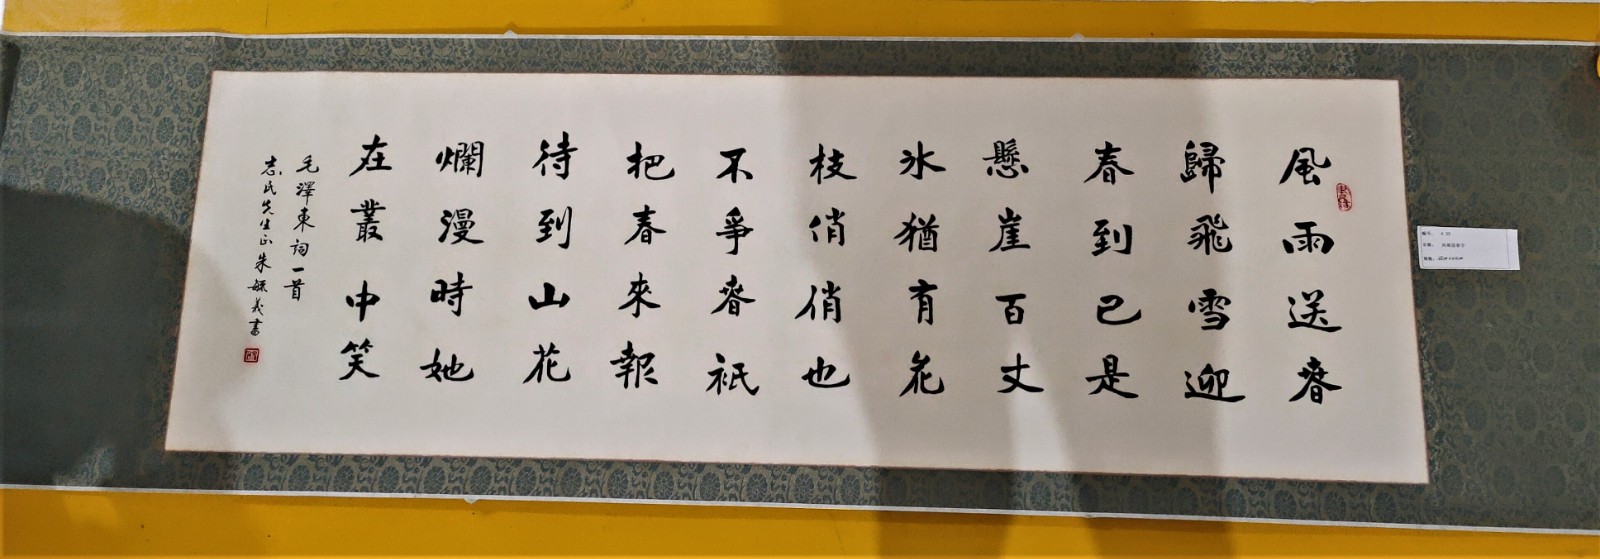 風雨送春
歸飛雪迎
春到已是
懸崖百丈
氷猶有花
枝俏俏也
不爭春衹
把春來報
待到山花
爛漫時她
在叢中笑
毛澤東詞一首
志民先生正朱毓义書